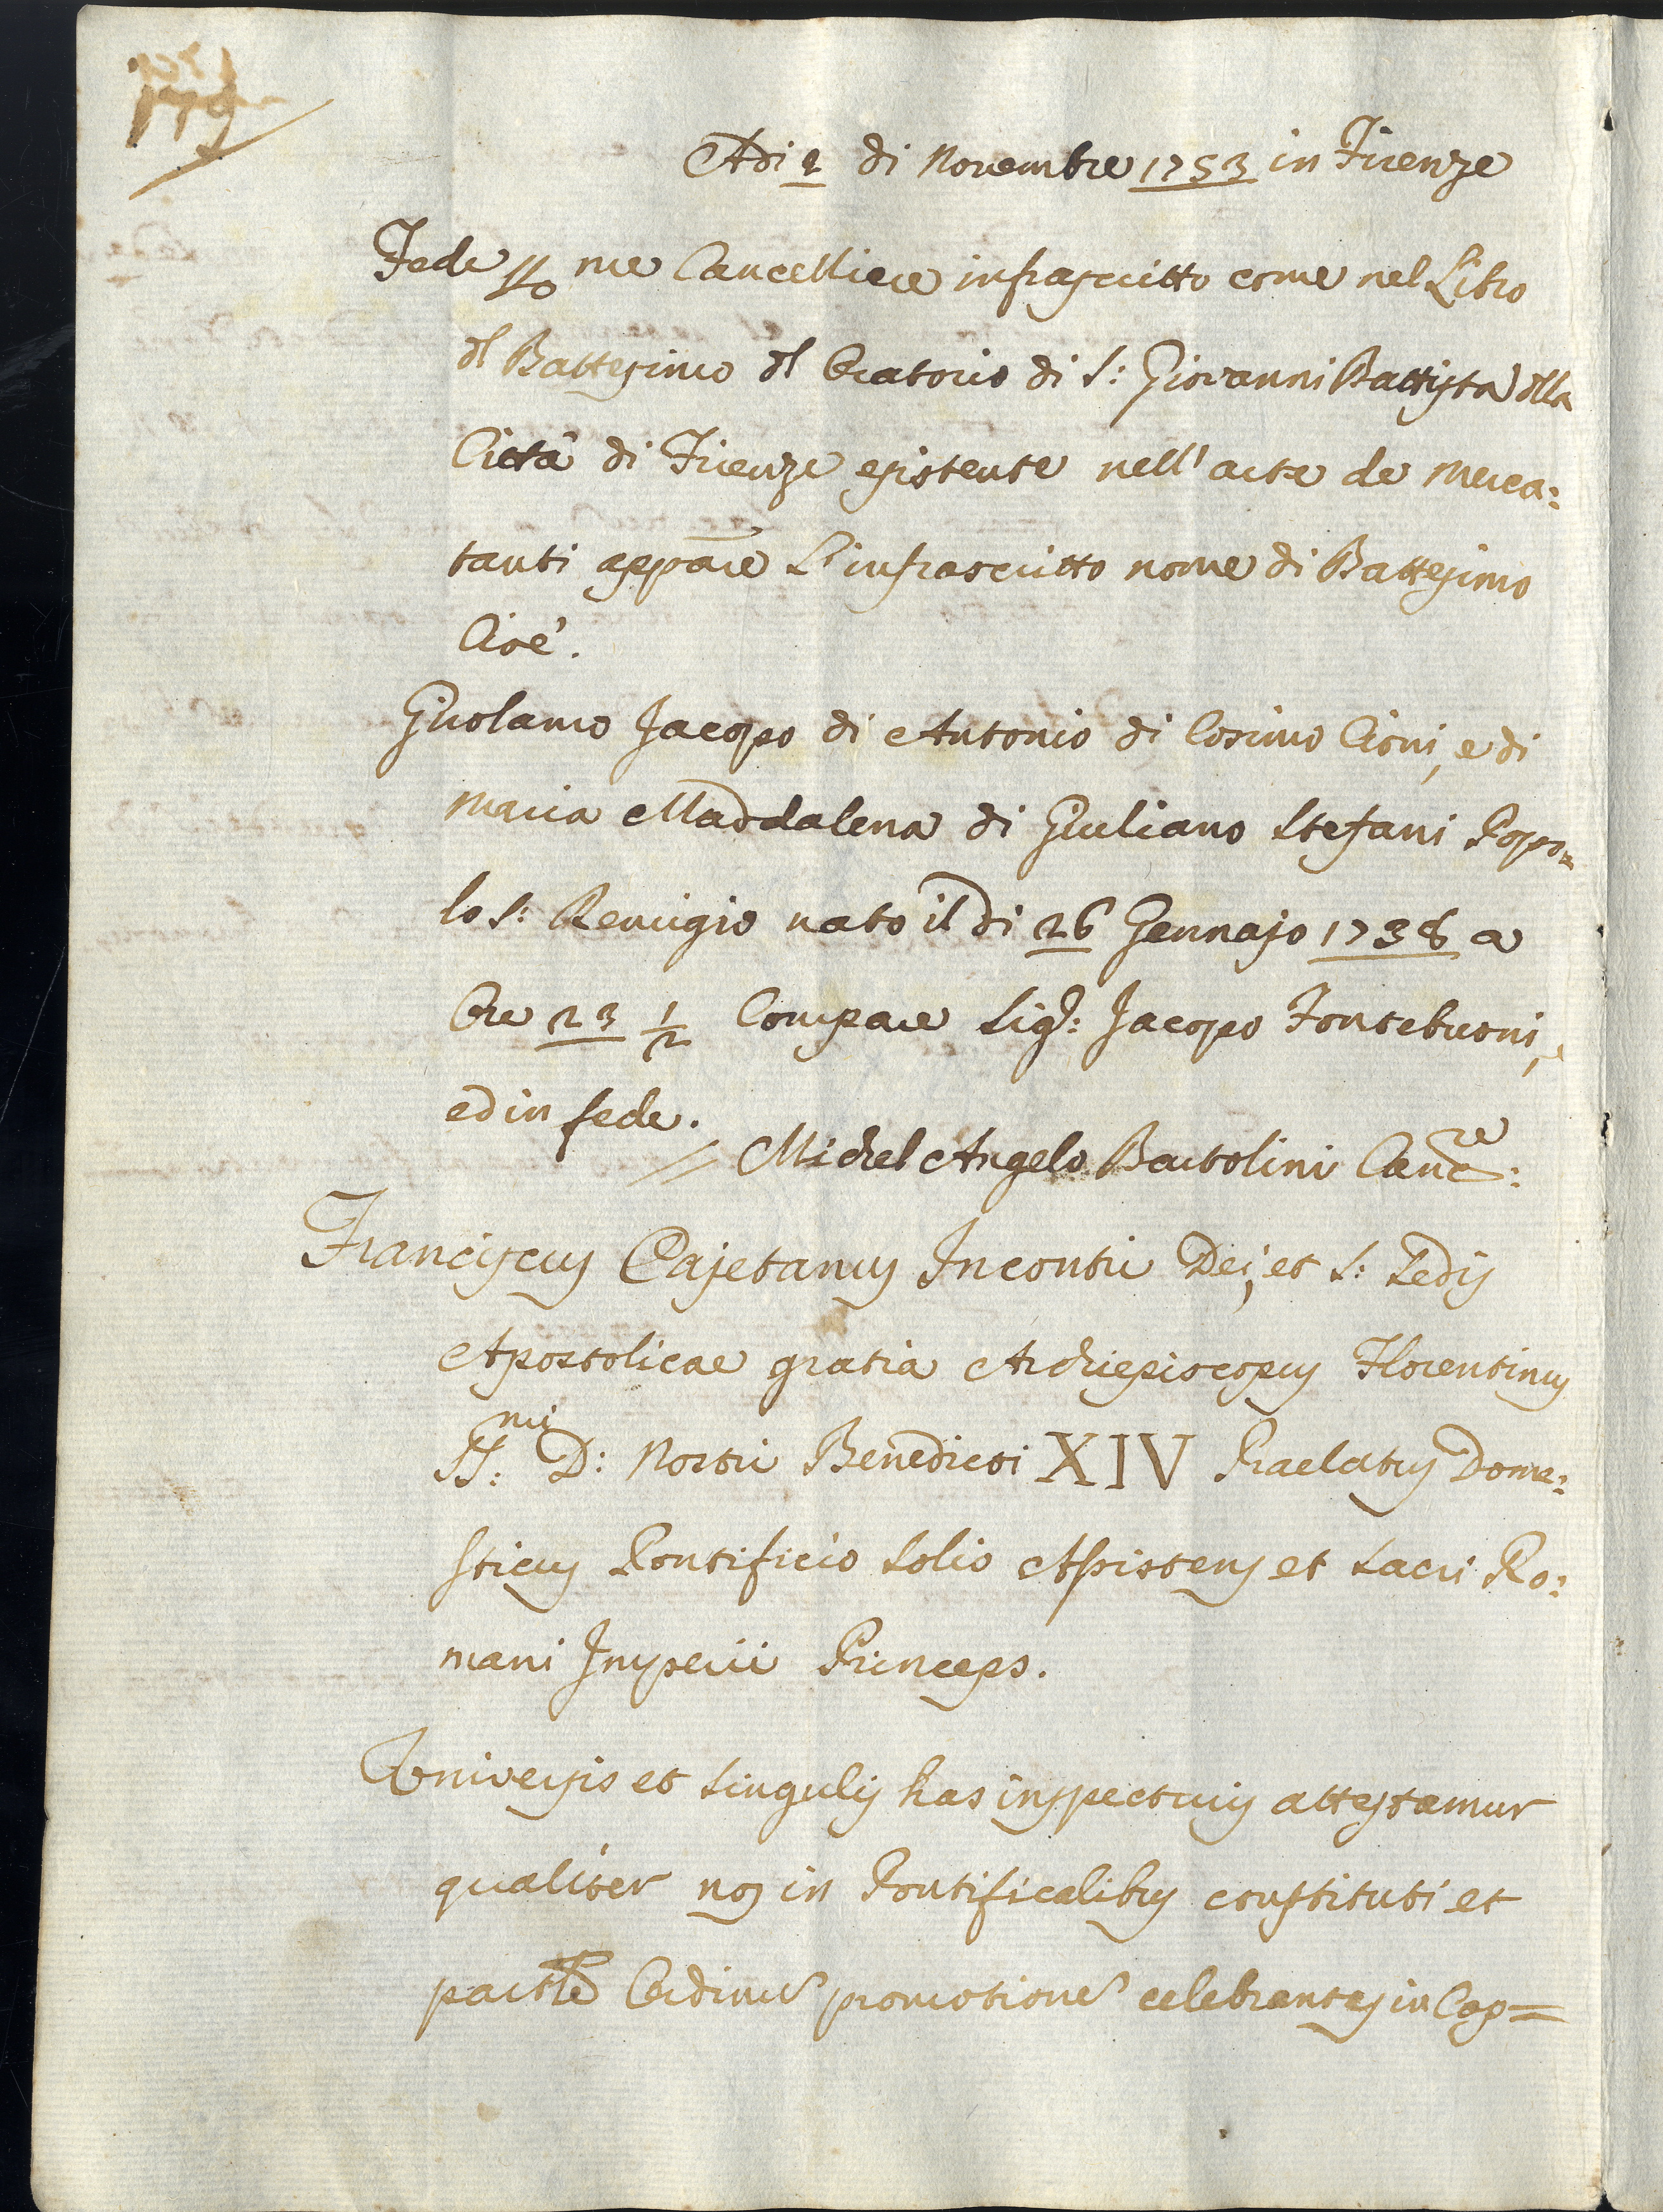 Adi 2 di Novembre 1753 in Firenze
Fede p me Cancelliere infrascritto come nel Libro
dl Battesimo dl Oratorio di S: Giovanni Battista dlla
Città di Firenze esistente nell'arte de Merca:
tanti appare L'infrascritto nome di Battesimo
Cioè.
Girolamo Jacopo di Antonio di Cosimo Cioni, e di
Maria Maddalena di Giuliano Stefani Popo=
lo S: Remigio nato il di 26 Gennajo 1738 a
Ore 23 1/2 Compare Sig: Jacopo Fontebuoni,
ed in fede.
// Michel Angelo Bartolini Canc:re
Franciscus Cajetanus Incontri Dei, et S: Sedis
Apostolicae gratia Archiepiscopus Florentinus
SS:mi D: Nostri Benedicti XIV Praelatus Dome:
sticus Pontificio Solio Assistens et Sacri Ro:
mani Imperii Princeps.
Universis et singulis has inspecturis attestamur
qualiter nos in Pontificalibus constituti et
Ordinu promotione celebrantes in Cap=